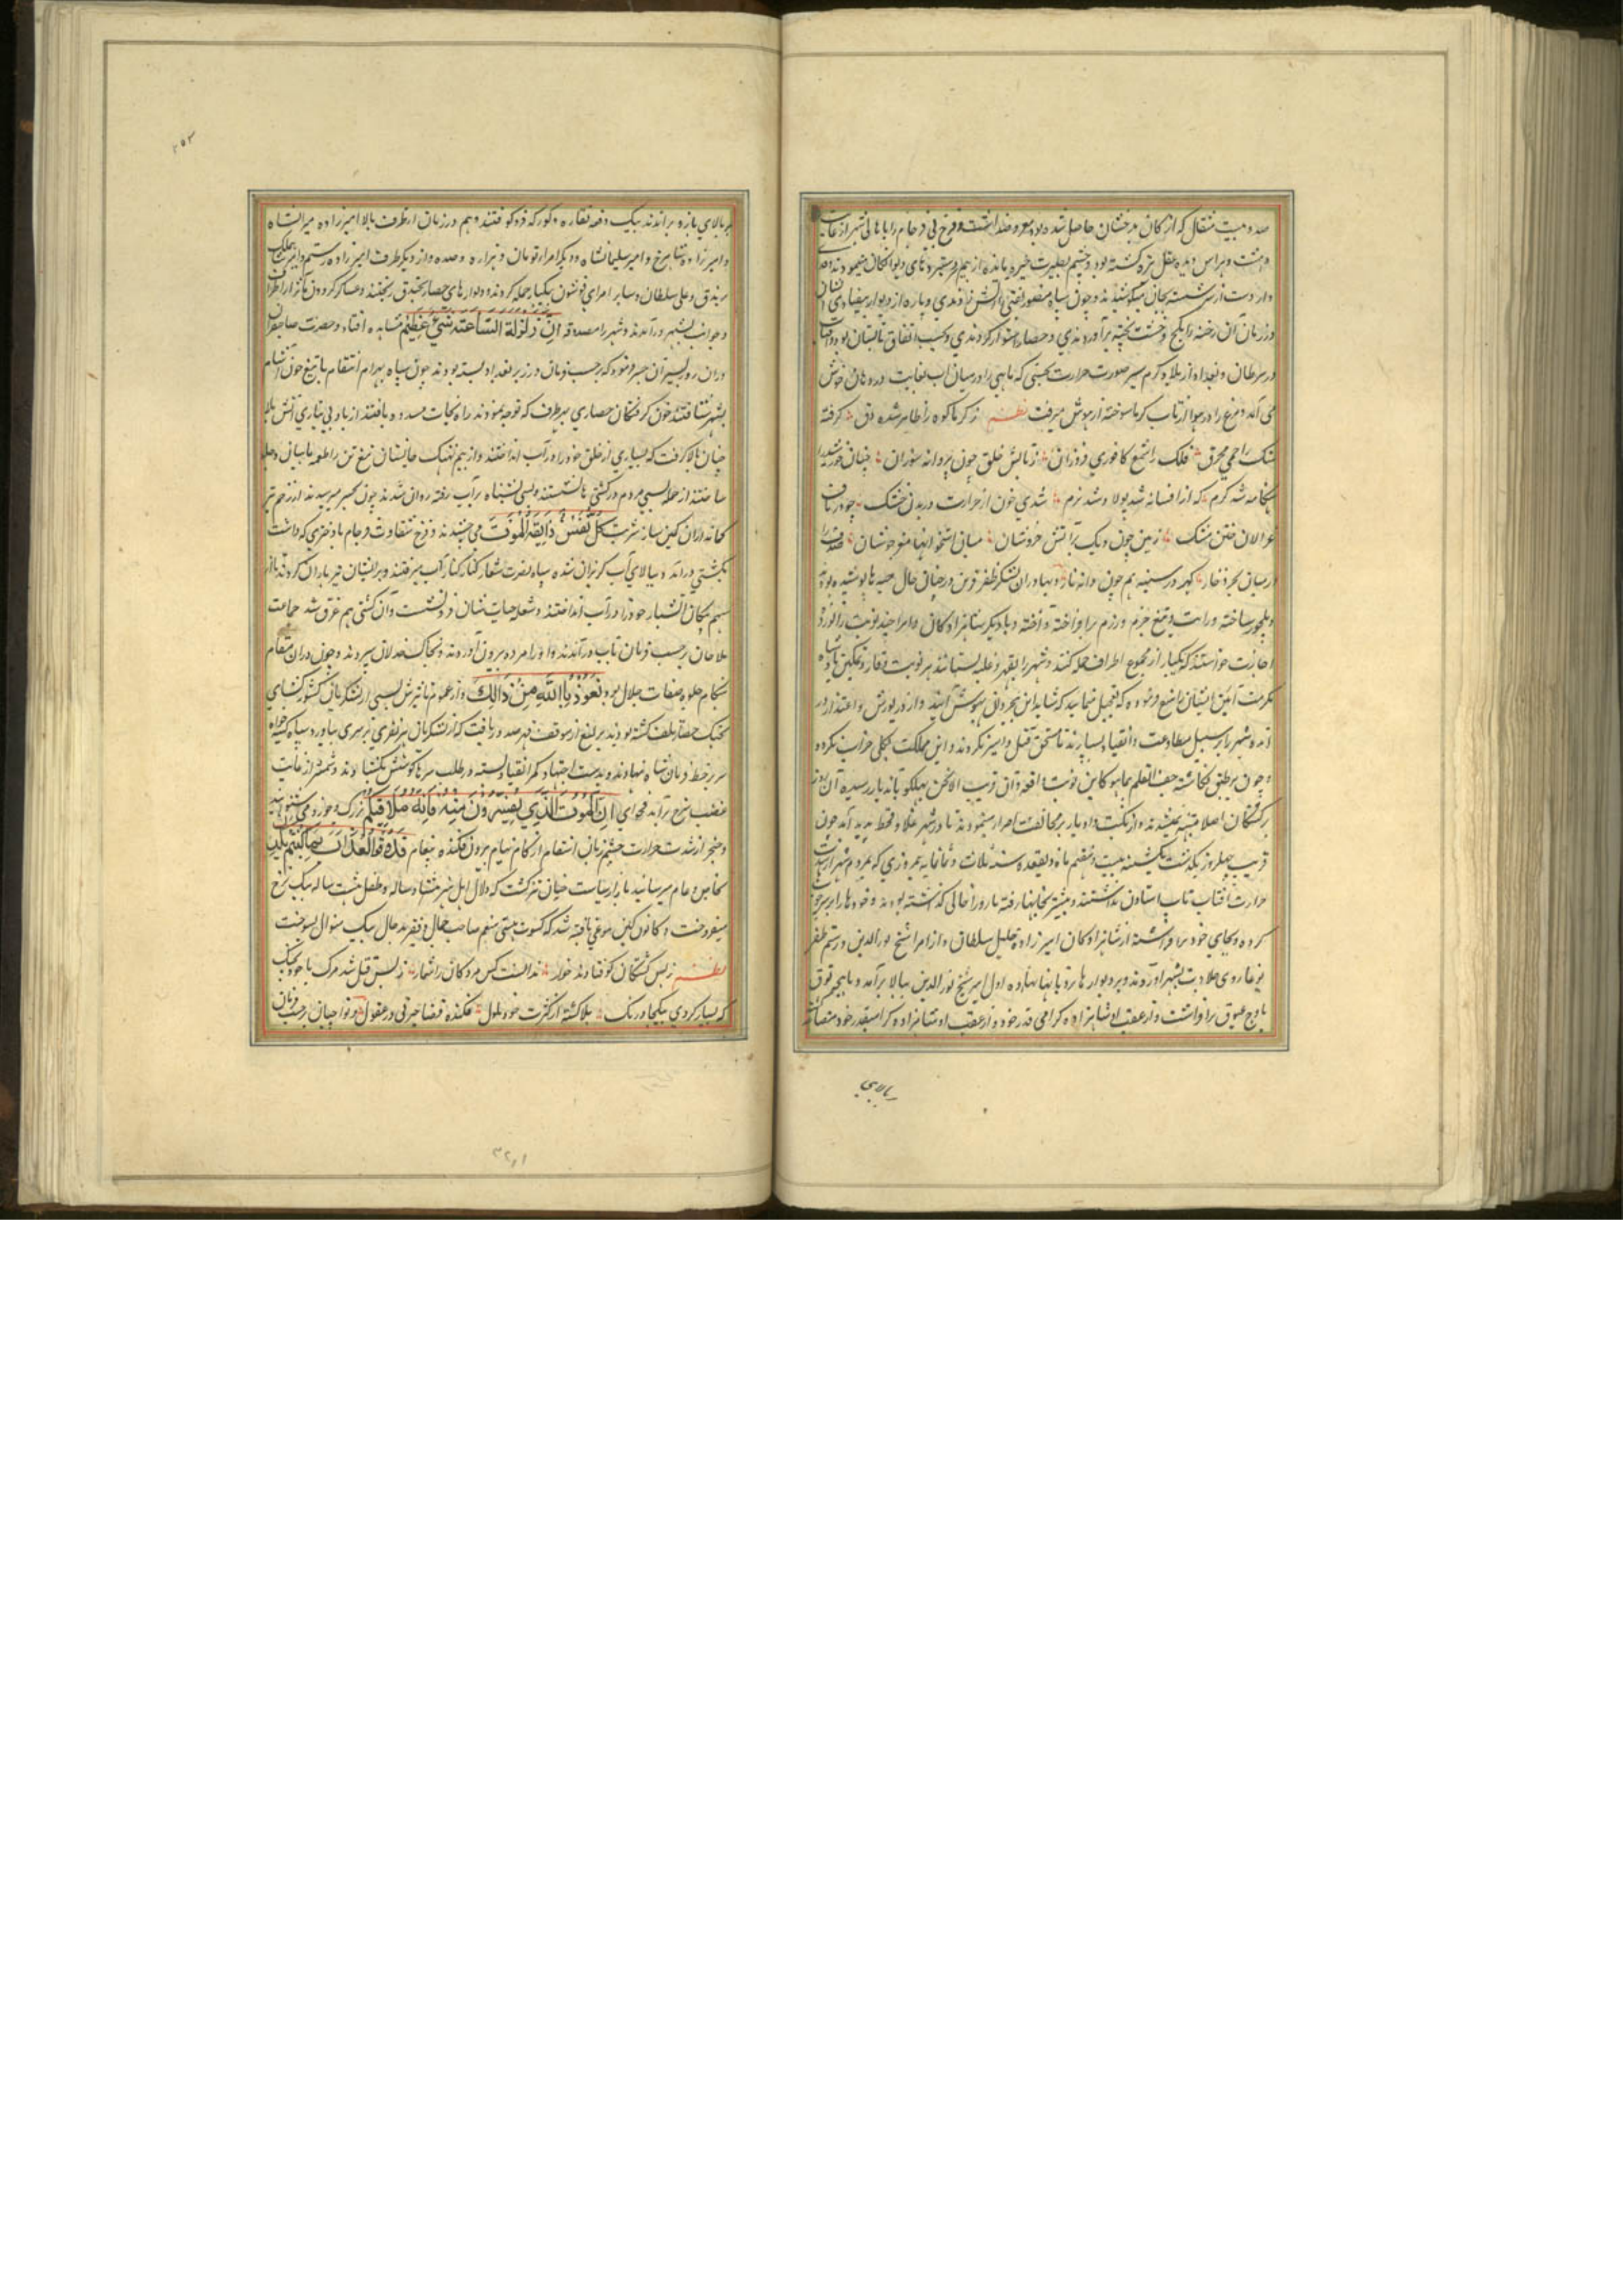 صد و بیست مثقال که از کان بدخشان حاصل شده بود
دهشت و هراس دیده عقل تیره گشته بود و چشم بصیرت خیره مانده از بیم
و از دست از جان شسته بجان میکوشیدند و چون سپاه منصور نقبی را آتش زدندی و پاره از دیوار بیفتادی
در زمان آن رخنه را بگچ و خشت پخته برآوردندی و حصار استوار کردندی و بحسب اتفاق تابستان بود و آفتاب
در سرطان و بغداد از بلاد گرم سیر صورت حرارت بحیثی که ماهی را در میان آب لعاب در دهان جوش
می آمد و مرغ را در هوا از تاب گرما سوخته از هوش میرفت نظم ز گرما کوه را ظاهر شده دق گرفته
فلک را شمع کافوری فروزان ز تابش خلق چون پروانه سوزان
هنگامه شد گرم که از افسانه شد پولاد شد نرم شدی خون از حرارت در بدن خشک چو در ناف
غزالان ختن مشک زمین چون دیگ بر آتش خروشان میان استخوانها مغز جوشان صدف را
در میان بحر ذخار گهر در سینه هم چون دانه نار و بهادران لشکر ظفر قرین در چنان حال جیبه ها پوشیده بودند
و ملجور ساخته و رایت و تیغ حزم و رزم برافراخته و آخته و با دیگر شاهزادگان و امرا چند نوبت زانو زده
اجازت خواستند که یکبار از مجموع اطراف حمله کنند و شهر را بقهر و غلبه بستانند هر نوبت وقار و تمکین پادشاه
مکرمت آیین ایشان را منع فرموده که تعجیل منمایید که شاید این بیخردان بهوش آیند و از در پوزش و اعتذار در
آمده شهر را بر سبیل مطاوعت و انقیاد بسپارند تا مستحق قتل و اسیر نگردند و این مملکت بکلی خراب نگردد
چون بر طبق نگاشته جف القلم بما هو کاین نوبت واقعه و ان من قریة الا نحن مهلکوها بآن دیار رسیده آن بخت
برگشتگان اصلا متنبه نمیشدند و از نکبت و ادبار بر مخالفت اصرار مینمودند تا در شهر غلا و قحط پدید آمد چون
قریب چهل روز بگذشت یکشنبه بیست و هفتم ماه ذیقعده سنه ثلاث و ثمانمایه نیم روزی که مردم شهر از شدت
حرارت آفتاب تاب استادن نداشتند و بیشتر بخانها رفته بارو را خالی گذاشته بودند و خودها را بر سر چوب
کرده و بجای خود برافراشته از شاهزادگان امیرزاده خلیل سلطان و از امرا شیخ نورالدین و رستم طغی
بوغا روی جلادت بشهر آوردند و بر دیوارها نردبانها نهاده اول امیر شیخ نورالدین ببالا برآمد و ماهیچه توق
باوج عیوق برافراشت و از عقب او شاهزاده گرامی قدر خود و از عقب او شاهزاده گرامیقدر خود
ببالای
۲۵۳
ببالای بارو برآمدند بیک دفعه نقاره و کورکه فرو کوفتند و هم در زمان از طرف بالا امیرزاده میرانشاه
و امیرزاده شاهرخ و امیر سلیمانشاه و دیگر امرا تومان و هزاره و صده و از دیگر طرف امیرزاده رستم و امیر شاه ملک
برندق و علی سلطان و سایر امرای قوشون بیکبار حمله کردند و دیوارهای حصار بخندق ریختند و عساکر گردون مآثر از اطراف
و جوانب بشهر درآمدند و شهر را مصدوقه ان زلزلة الساعة شیء عظیم مشاهده افتاد و حضرت صاحبقران
در آن روز بسر آن جسر فرمود که بر حسب فرمان در زیر بغداد بسته بودند چون سپاه بهرام انتقام با تیغ خون آشام
بشهر شتافتند خون گرفتگان حصاری بهر طرف که توجه نمودند راه نجات مسدود یافتند از باد بی نیازی آتش بلا
چنان بالا گرفت که بسیاری از خلق خود را در آب انداختند و از بیم نهنگ جانستان تیغ تن را طعمه ماهیان دجله
ساختند از جمله بسی مردم در کشتی ها نشستند و بسی بشناه بر آب رفته روان شدند چون بجسر میرسیدند از زخم تیر
کمانداران کمین ساز شربت کل نفس ذایقة الموت می چشیدند و فرخ شقاوت فرجام با دختری که داشت
بکشتی درآمد و ببالای آب گریزان شده سپاه نصرت شعار کنار کنار آب میرفتند و بر ایشان تیر باران کردند تا از
سهم پیکان آتشبار خود را در آب انداختند و شعله حیاتشان فرو نشست و آن کشتی هم غرق شد جماعت
ملاحان بر حسب فرمان بآب درآمدند و او را مرده بیرون آوردند و بخاک خذلان سپردند و چون در آن مقام
هنگام جلوه صفات جلال بود نعوذ بالله من ذالک و از عموم تاثیرش بسی از لشکریان کشور گشای
بجنگ حصار تلف گشته بودند یرلیغ از موقف قهر صدور یافت که از لشکریان هر نفری سری بیاورد سپاه کینه خواه
سر بر خط فرمان شاه نهادند و بدست اجتهاد کمر انقیاد بسته در طلب سرها کوشش بگشادند و شمشیر از غایت
غضب سرخ برآمد فحوای ان الموت الذی تفرون منه فانه ملاقیکم بزرگ و خورد می شنوانید
و خنجر از شدت حرارت خشم زبان انتقام از کام نیام بیرون فکنده پیغام فذوقوا العذاب بما کنتم
بخاص و عام میرسانید بازار سیاست چنان تیز گشت که دلال اجل پیر هشتاد ساله و طفل هشت ساله بیک نرخ
میفروخت و کانون کین بنوعی تافته شد که کسوت هستی منعم صاحب مال و فقیر بد حال بیک منوال بسوخت
نظم ز بس کشتگان کوفتادند خوار ندانست کس مردگان را شمار ز بس قتل شد مرگ با خود بجنگ
که بسیار کردی بیکجا درنگ بلا گشته از کثرت خود ملول فکنده قضا حیرتی در عقول و تواچیان بر حسب فرمان